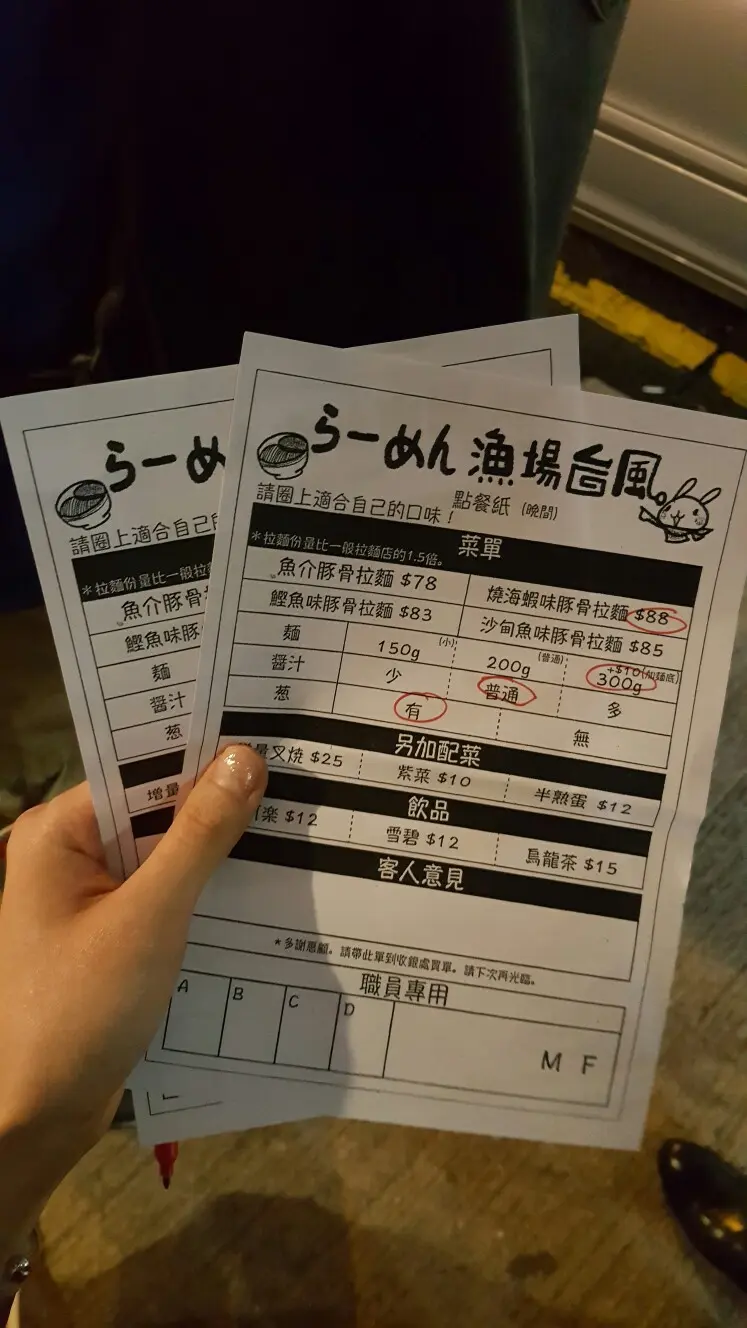 らーめん 漁場台風
請圈上適合自己的口味！ 點餐紙 (晚間)
*拉麵份量比一般拉麵店的1.5倍。 菜單
魚介豚骨拉麵 $78 燒海蝦味豚骨拉麵 $88
鰹魚味豚骨拉麵 $83 沙甸魚味豚骨拉麵 $85
麵 150g (小) 200g (普通) 300g +$10(加麵底)
醤汁 少 普通 多
葱 有 無
另加配菜
量叉燒 $25 紫菜 $10 半熟蛋 $12
飲品
楽 $12 雪碧 $12 烏龍茶 $15
客人意見
*多謝惠顧。請帶此單到收銀處買單。請下次再光臨。
職員專用
A B C D M F
らーめ
請圈上適合自己
*拉麵份量比一般拉
魚介豚骨
鰹魚味豚
麵
醤汁
葱
增量